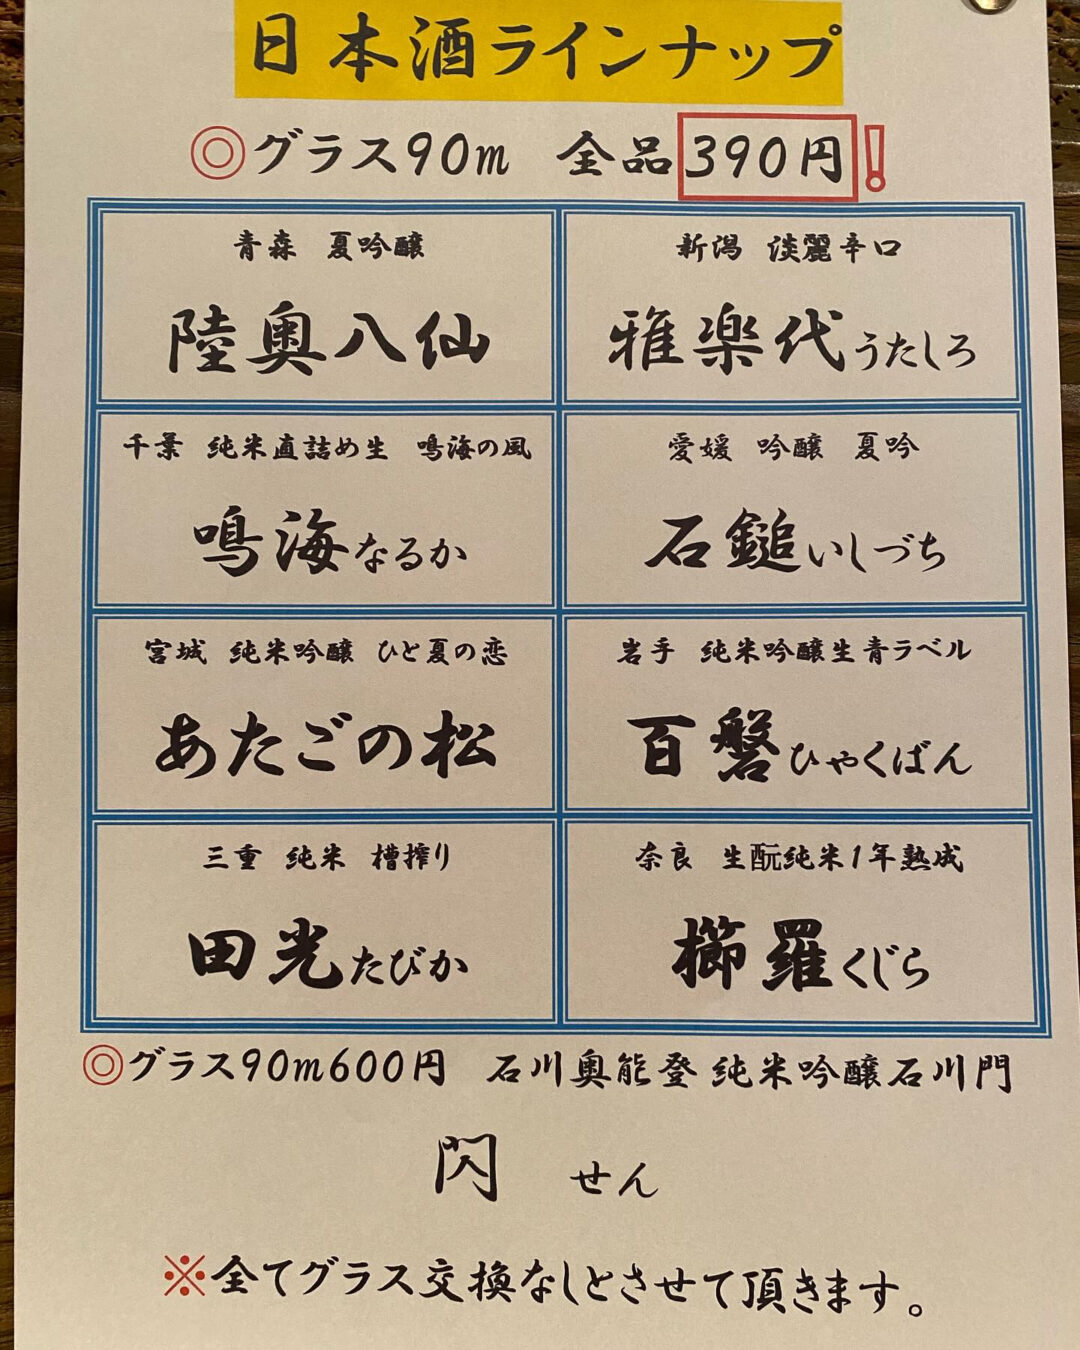 日本酒ラインナップ
◎グラス90m 全品390円!
青森 夏吟醸
陸奥八仙
新潟 淡麗辛口
雅楽代うたしろ
千葉 純米直詰め生 鳴海の風
鳴海なるか
愛媛 吟醸 夏吟
石鎚いしづち
宮城 純米吟醸 ひと夏の恋
あたごの松
岩手 純米吟醸生青ラベル
百磐ひゃくばん
三重 純米 槽搾り
田光たびか
奈良 生酛純米1年熟成
櫛羅くじら
◎グラス90m600円 石川奥能登 純米吟醸石川門
閃 せん
※全てグラス交換なしとさせて頂きます。